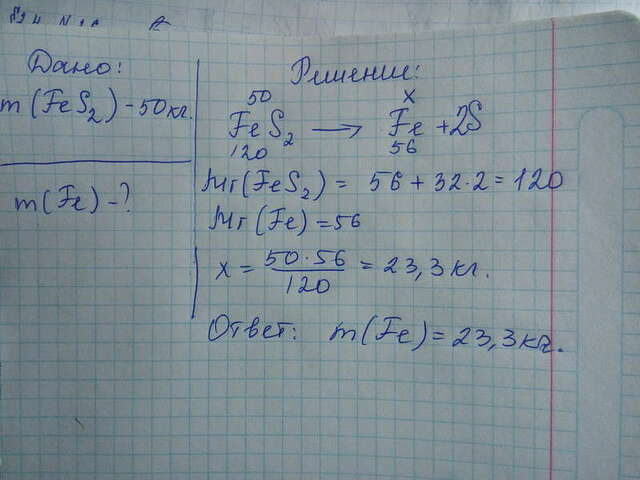 Дано:
m(FeS₂) - 50 кг.
m(Fe) - ?
Решение:
50 x
FeS₂ → Fe + 2S
120 56
Mr(FeS₂) = 56 + 32·2 = 120
Mr(Fe) = 56
x = 50·56 / 120 = 23,3 кг.
Ответ: m(Fe) = 23,3 кг.